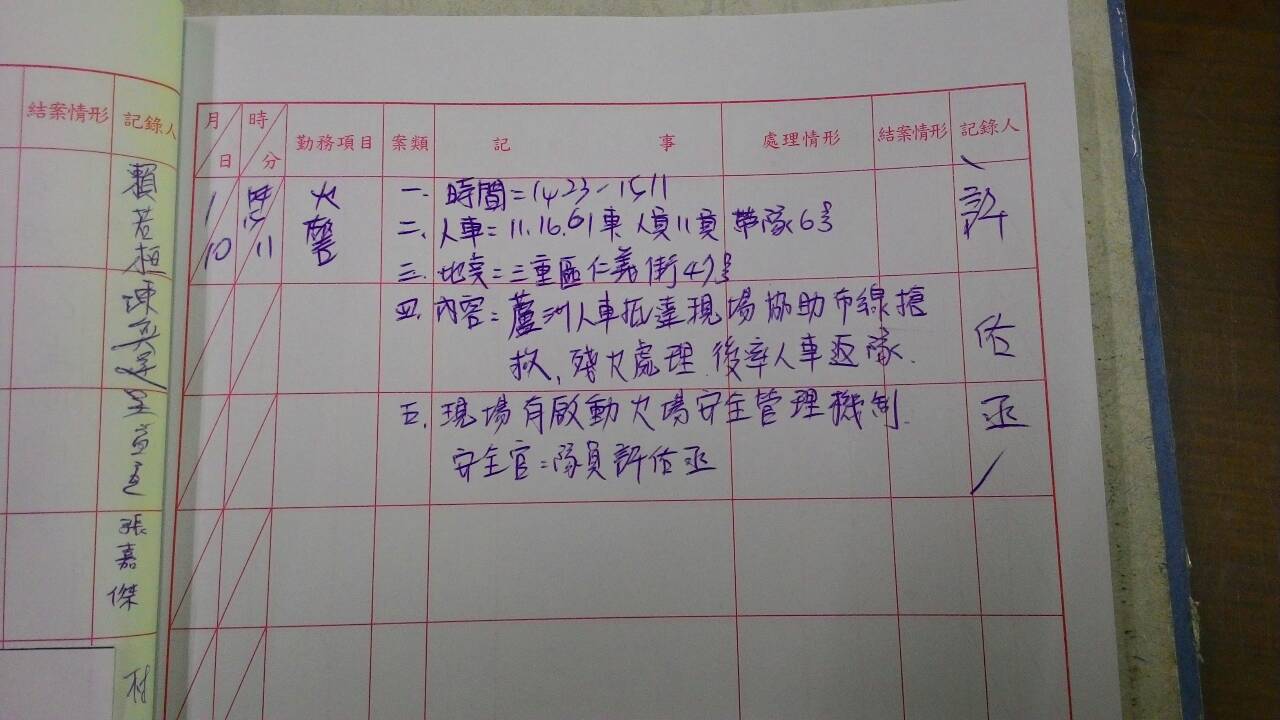 結案情形 記錄人
賴
若
桓
陳
張
嘉
傑
月 日 時 分 勤務項目 案類 記 事 處理情形 結案情形 記錄人
1 10 11 火警 一. 時間=1423-1511
二. 人車=11.16.61車 人員11員 帶隊63
三. 地點=三重區仁義街47號
四. 內容=蘆洲人車抵達現場協助布線搶
救、殘火處理.後率人車返隊.
五. 現場有啟動火場安全管理機制.
安全官=隊員許佑丞
許
佑
丞